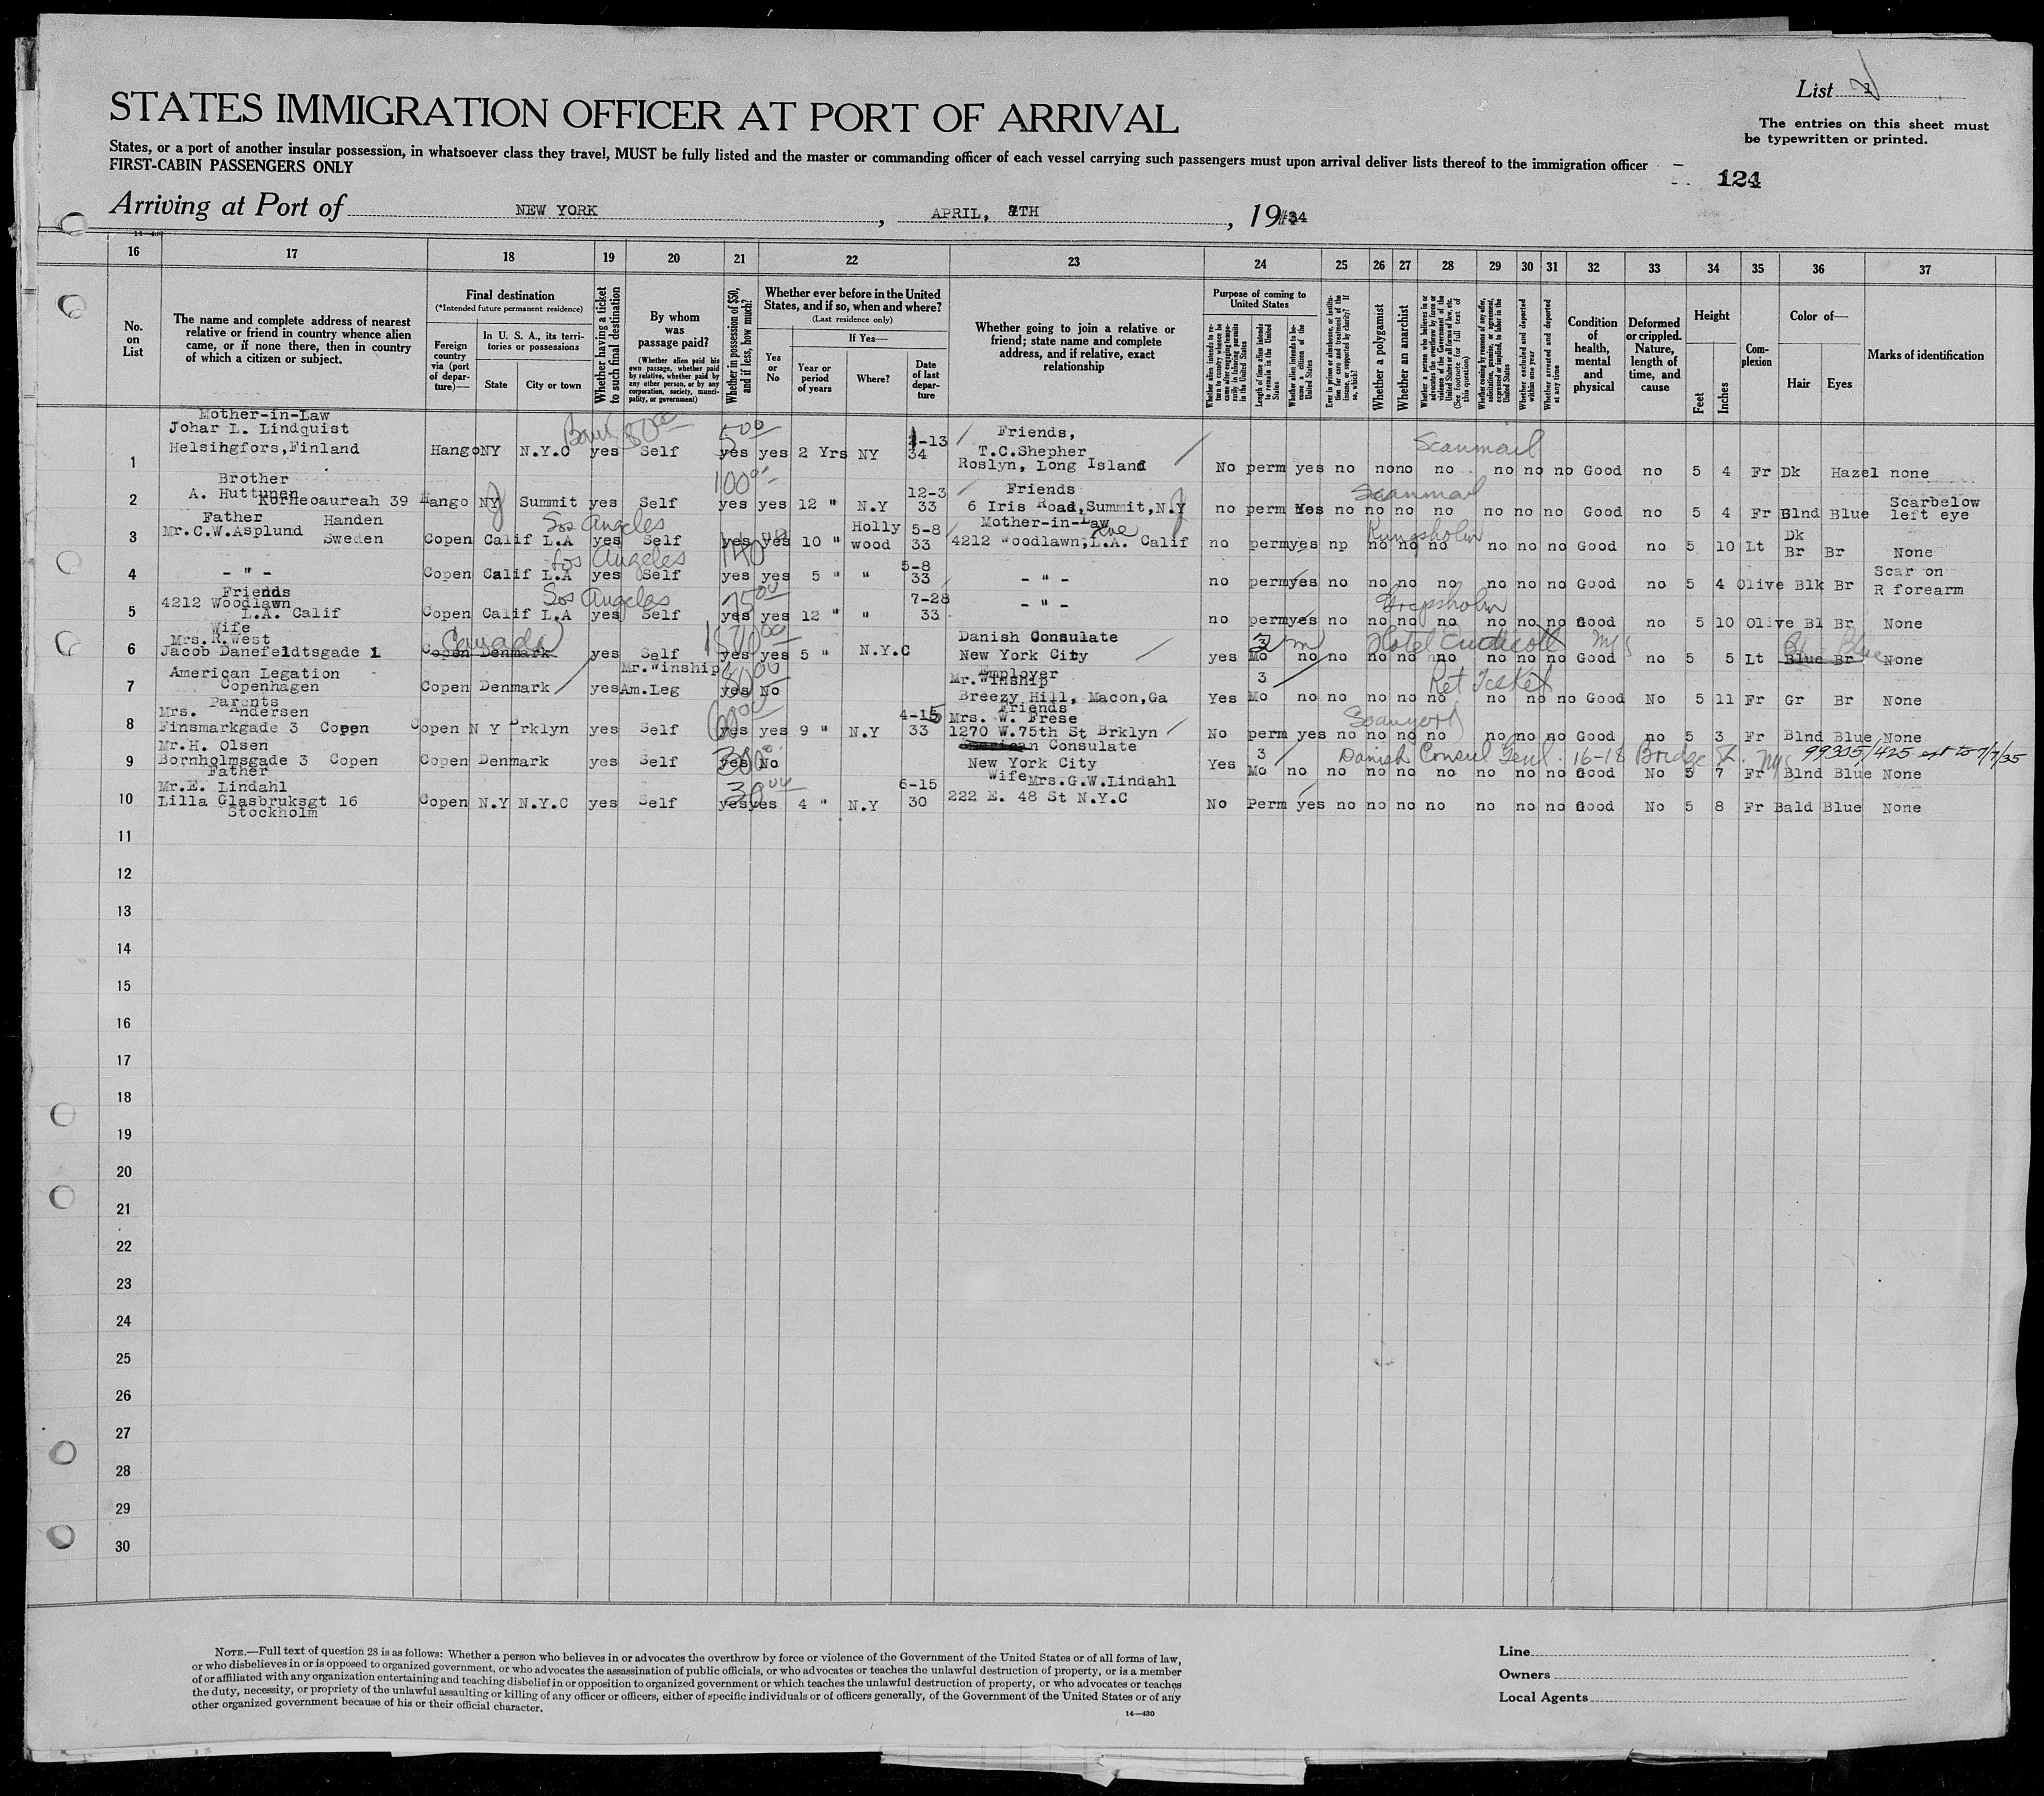 List 2
STATES IMMIGRATION OFFICER AT PORT OF ARRIVAL
The entries on this sheet must
be typewritten or printed.
States, or a port of another insular possession, in whatsoever class they travel, MUST be fully listed and the master or commanding officer of each vessel carrying such passengers must upon arrival deliver lists thereof to the immigration officer
FIRST-CABIN PASSENGERS ONLY
124
Arriving at Port of NEW YORK, APRIL, 7TH, 1934
16 17 18 19 20 21 22 23 24 25 26 27 28 29 30 31 32 33 34 35 36 37
No. on List
The name and complete address of nearest relative or friend in country whence alien came, or if none there, then in country of which a citizen or subject.
Final destination
(*Intended future permanent residence)
Foreign country via (port of departure)—
In U. S. A., its territories or possessions
State
City or town
Whether having a ticket to such final destination
By whom was passage paid?
(Whether alien paid his own passage, whether paid by relative, whether paid by any other person, or by any corporation, society, municipality, or government)
Whether in possession of $50, and if less, how much?
Whether ever before in the United States, and if so, when and where?
(Last residence only)
Yes or No
If Yes—
Year or period of years
Where?
Date of last departure
Whether going to join a relative or friend; state name and complete address, and if relative, exact relationship
Purpose of coming to United States
Length of time alien intends to remain in the United States
Whether alien intends to become a citizen of the United States
Whether a polygamist
Whether an anarchist
Whether excluded and deported within one year
Whether arrested and deported at any time
Condition of health, mental and physical
Deformed or crippled. Nature, length of time, and cause
Height
Feet
Inches
Complexion
Color of—
Hair
Eyes
Marks of identification
Mother-in-Law
Johar L. Lindquist
Helsingfors,Finland
1 Hango NY N.Y.C yes Self yes yes 2 Yrs NY 34 Friends, T.C.Shepher Roslyn, Long Island No perm yes no no no no no no no Good no 5 4 Fr Dk Hazel none
Scanmail
Brother
A. Huttunen
2 Hango NY Summit yes Self 100 yes yes 12 " N.Y 12-3 33 Friends 6 Iris Road,Summit,N.Y no perm Yes no no no no no no no Good no 5 4 Fr Blnd Blue Scarbelow left eye
Scanmail
Father Handen
Mr.C.W.Asplund Sweden
3 Copen Calif L.A Los Angeles yes Self yes yes 10 " Holly wood 5-8 33 Mother-in-Law 4212 Woodlawn, Ave L.A. Calif no perm yes np no no no no no no Good no 5 10 Lt Dk Br Br None
Kungsholm
4 - " - Copen Calif L.A Los Angeles yes Self yes yes 5 " " 5-8 33 - " - no perm yes no no no no no no no Good no 5 4 Olive Blk Br Scar on R forearm
Friends
4212 Woodlawn
L.A. Calif
5 Copen Calif L.A Los Angeles yes Self 75 yes yes 12 " " 7-28 33 - " - no perm yes no no no no no no no Good no 5 10 Olive Bl Br None
Gripsholm
Wife
Mrs.R.West
Jacob Danefeldtsgade 1
6 Canada Copen Denmark yes Self yes yes 5 " N.Y.C Danish Consulate New York City yes 3 Mo no no no no no no no no Good no 5 5 Lt Blue Br None
Hotel Endicott NYC
American Legation
Copenhagen
7 Copen Denmark yes Mr.Winship Am.Leg yes No Employer Mr.Winship Breezy Hill, Macon,Ga Yes 3 Mo no no no no no no no no Good No 5 11 Fr Gr Br None
Ret Ticket
Parents
Mrs. Andersen
Finsmarkgade 3 Copen
8 Copen N Y Brklyn yes Self yes yes 9 " N.Y 4-15 33 Friends Mrs. W. Frese 1270 W.75th St Brklyn No perm yes no no no no no no no Good no 5 3 Fr Blnd Blue None
Scanyork
Mr.H. Olsen
Bornholmsgade 3 Copen
9 Copen Denmark yes Self yes No American Consulate New York City Yes 3 Mo no no no no no no no no Good No 5 7 Fr Blnd Blue None
Danish Consul Genl. 16-18 Bridge St. NYC 99305/425 ext to 7/7/35
Father
Mr.E. Lindahl
Lilla Glasbruksgt 16
Stockholm
10 Copen N.Y N.Y.C yes Self 30 yes yes 4 " N.Y 6-15 30 Wife Mrs.G.W.Lindahl 222 E. 48 St N.Y.C No Perm yes no no no no no no no Good No 5 8 Fr Bald Blue None
11
12
13
14
15
16
17
18
19
20
21
22
23
24
25
26
27
28
29
30
NOTE.—Full text of question 28 is as follows: Whether a person who believes in or advocates the overthrow by force or violence of the Government of the United States or of all forms of law,
or who disbelieves in or is opposed to organized government, or who advocates the assassination of public officials, or who advocates or teaches the unlawful destruction of property, or is a member
of or affiliated with any organization entertaining and teaching disbelief in or opposition to organized government or which teaches the unlawful destruction of property, or who advocates or teaches
the duty, necessity, or propriety of the unlawful assaulting or killing of any officer or officers, either of specific individuals or of officers generally, of the Government of the United States or of any
other organized government because of his or their official character.
14—430
Line
Owners
Local Agents